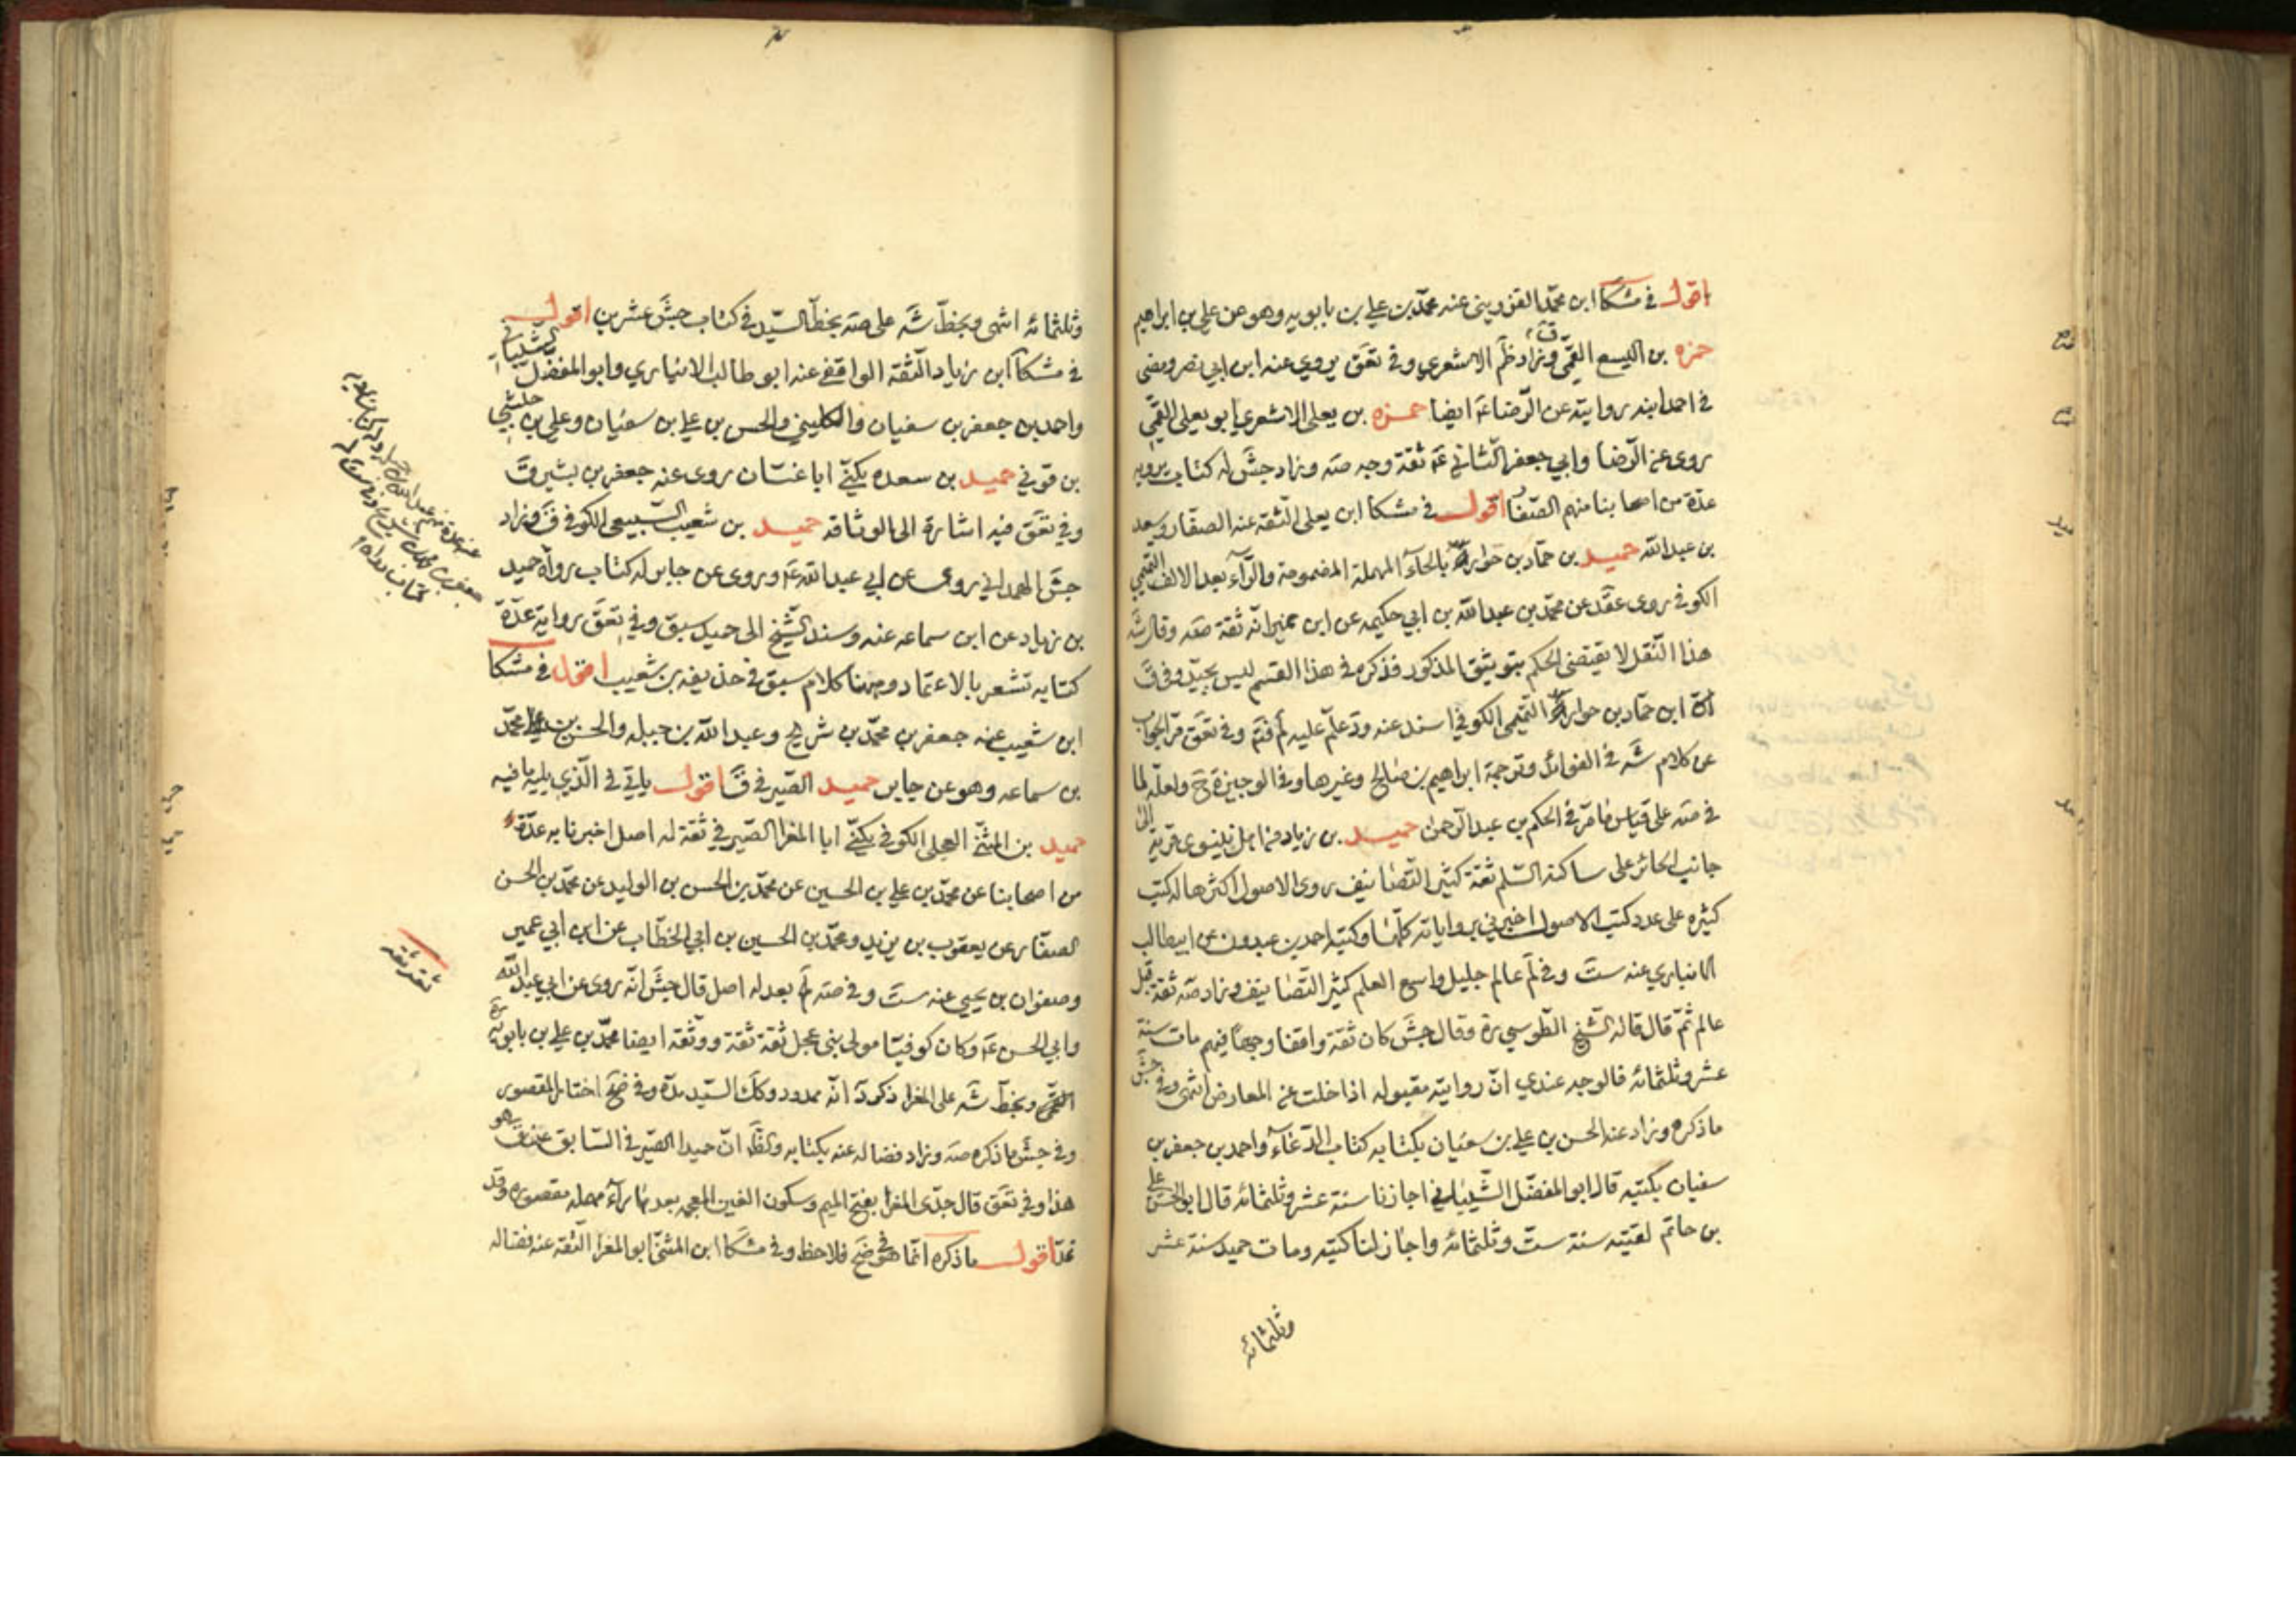 اقول في مشكا ابن محمد القزويني عنه محمد بن علي بن بابويه وهو عن علي بن ابراهيم
حمزه بن اليسع القمي ق وزاد ظم الاشعري وفي تعق يروي عنه ابن ابي نصر ومضى
في احمد ابنه روايته عن الرضا ع ايضا حمزه بن يعلى الاشعري ابو يعلى القمي
روى عن الرضا وابي جعفر الثاني ع ثقة وجه صه وزاد جش له كتاب يرويه
عدة من اصحابنا منهم الصفار اقول في مشكا ابن يعلى الثقة عنه الصفار وسعد
بن عبد الله حميد بن حماد بن حوار بالحاء المهملة المضمومة والراء بعد الالف التميمي
الكوفي روى عقد عن محمد بن عبد الله بن ابي حكيمه عن ابن نمير انه ثقة صه وقال شه
هذا النقل لا يقتضي الحكم بتوثيق المذكور فذكره في هذا القسم ليس بجيد وفي ق
ابن حماد بن حوار التميمي الكوفي اسند عنه وفي تعق مر الجواب
عن كلام شه في الفوائد وترجمة ابراهيم بن صالح وغيرها وفي الوجيزة ح ولعله لما
في صه على قياس ما مر في الحكم بن عبد الرحمن حميد بن زياد من اهل نينوى قرية الى
جانب الحائر على ساكنه السلم ثقة كثير التصانيف روى الاصول اكثرها له كتب
كثيره على عدد كتب الاصول اخبرني برواياته كلها وكتبه احمد بن عبدون عن ابيطالب
الانباري عنه ست وفي لم عالم جليل واسع العلم كثير التصانيف وزاد صه ثقة قبل
عالم ثم قال قاله الشيخ الطوسي ره وقال جش كان ثقة واقفا وجها فيهم مات سنة
عشر وثلثمائه فالوجه عندي ان روايته مقبوله اذا خلت عن المعارض انتهى وفي جش
ما ذكره وزاد عنه الحسن بن علي بن سفيان بكتابه كتاب الدعاء واحمد بن جعفر بن
سفيان بكتبه قال ابو المفضل الشيباني اجازنا سنة عشر وثلثمائه قال ابو الحسن علي
بن حاتم لقيته سنة ست وثلثمائه واجاز لنا كتبه ومات حميد سنة عشر
وثلثمائه
وثلثمائه انتهى وبخط شه على صه بخط السيد في كتاب جش عشرين اقول
في مشكا ابن زياد الثقة الواقفي عنه ابو طالب الانباري وابو المفضل الشيباني
واحمد بن جعفر بن سفيان والكليني والحسن بن علي بن سفيان وعلي بن حبشي
بن قوني حميد بن سعده يكنى ابا غسان روى عنه جعفر بن بشير ق
وفي تعق فيه اشارة الى الوثاقه حميد بن شعيب السبيعي الكوفي ق وزاد
جش الهمداني روى عن ابي عبد الله ع وروى عن جابر له كتاب رواه حميد
بن زياد عن ابن سماعه عنه وسند الشيخ الى حميد سبق وفي تعق رواية عدة
كتابه تشعر بالاعتماد وههنا كلام سبق في حذيفه بن شعيب اقول في مشكا
ابن شعيب عنه جعفر بن محمد بن شريح وعبد الله بن جبله والحسن بن محمد
بن سماعه وهو عن جابر حميد الصيرفي ق اقول ياتي في الذي يليه ما فيه
حميد بن المثنى العجلي الكوفي يكنى ابا المغرا الصيرفي ثقة له اصل اخبرنا به عدة
من اصحابنا عن محمد بن علي بن الحسين عن محمد بن الحسن بن الوليد عن محمد بن الحسن
الصفار عن يعقوب بن يزيد ومحمد بن الحسين بن ابي الخطاب عن ابن ابي عمير
وصفوان بن يحيى عنه ست وفي صه بعد له اصل قال جش انه روى عن ابي عبد الله
وابي الحسن ع وكان كوفيا مولى بني عجل ثقة ثقة ووثقه ايضا محمد بن علي بن بابويه
القمي وبخط شه على المغرا ذكر د انه ممدود وكك السيد وفي ضح اختار المقصور
وفي جش ما ذكره صه وزاد فضاله عنه بكتابه والظ ان حميدا الصيرفي السابق عن ق هو
هذا وفي تعق قال جدي المغرا بفتح الميم وسكون الغين المعجمه بعدها راء مهمله مقصوره وقد
تمد اقول ما ذكره انما هو في ضح فلاحظ وفي مشكا ابن المثنى ابو المغرا الثقة عنه فضاله
ثقه ثقه